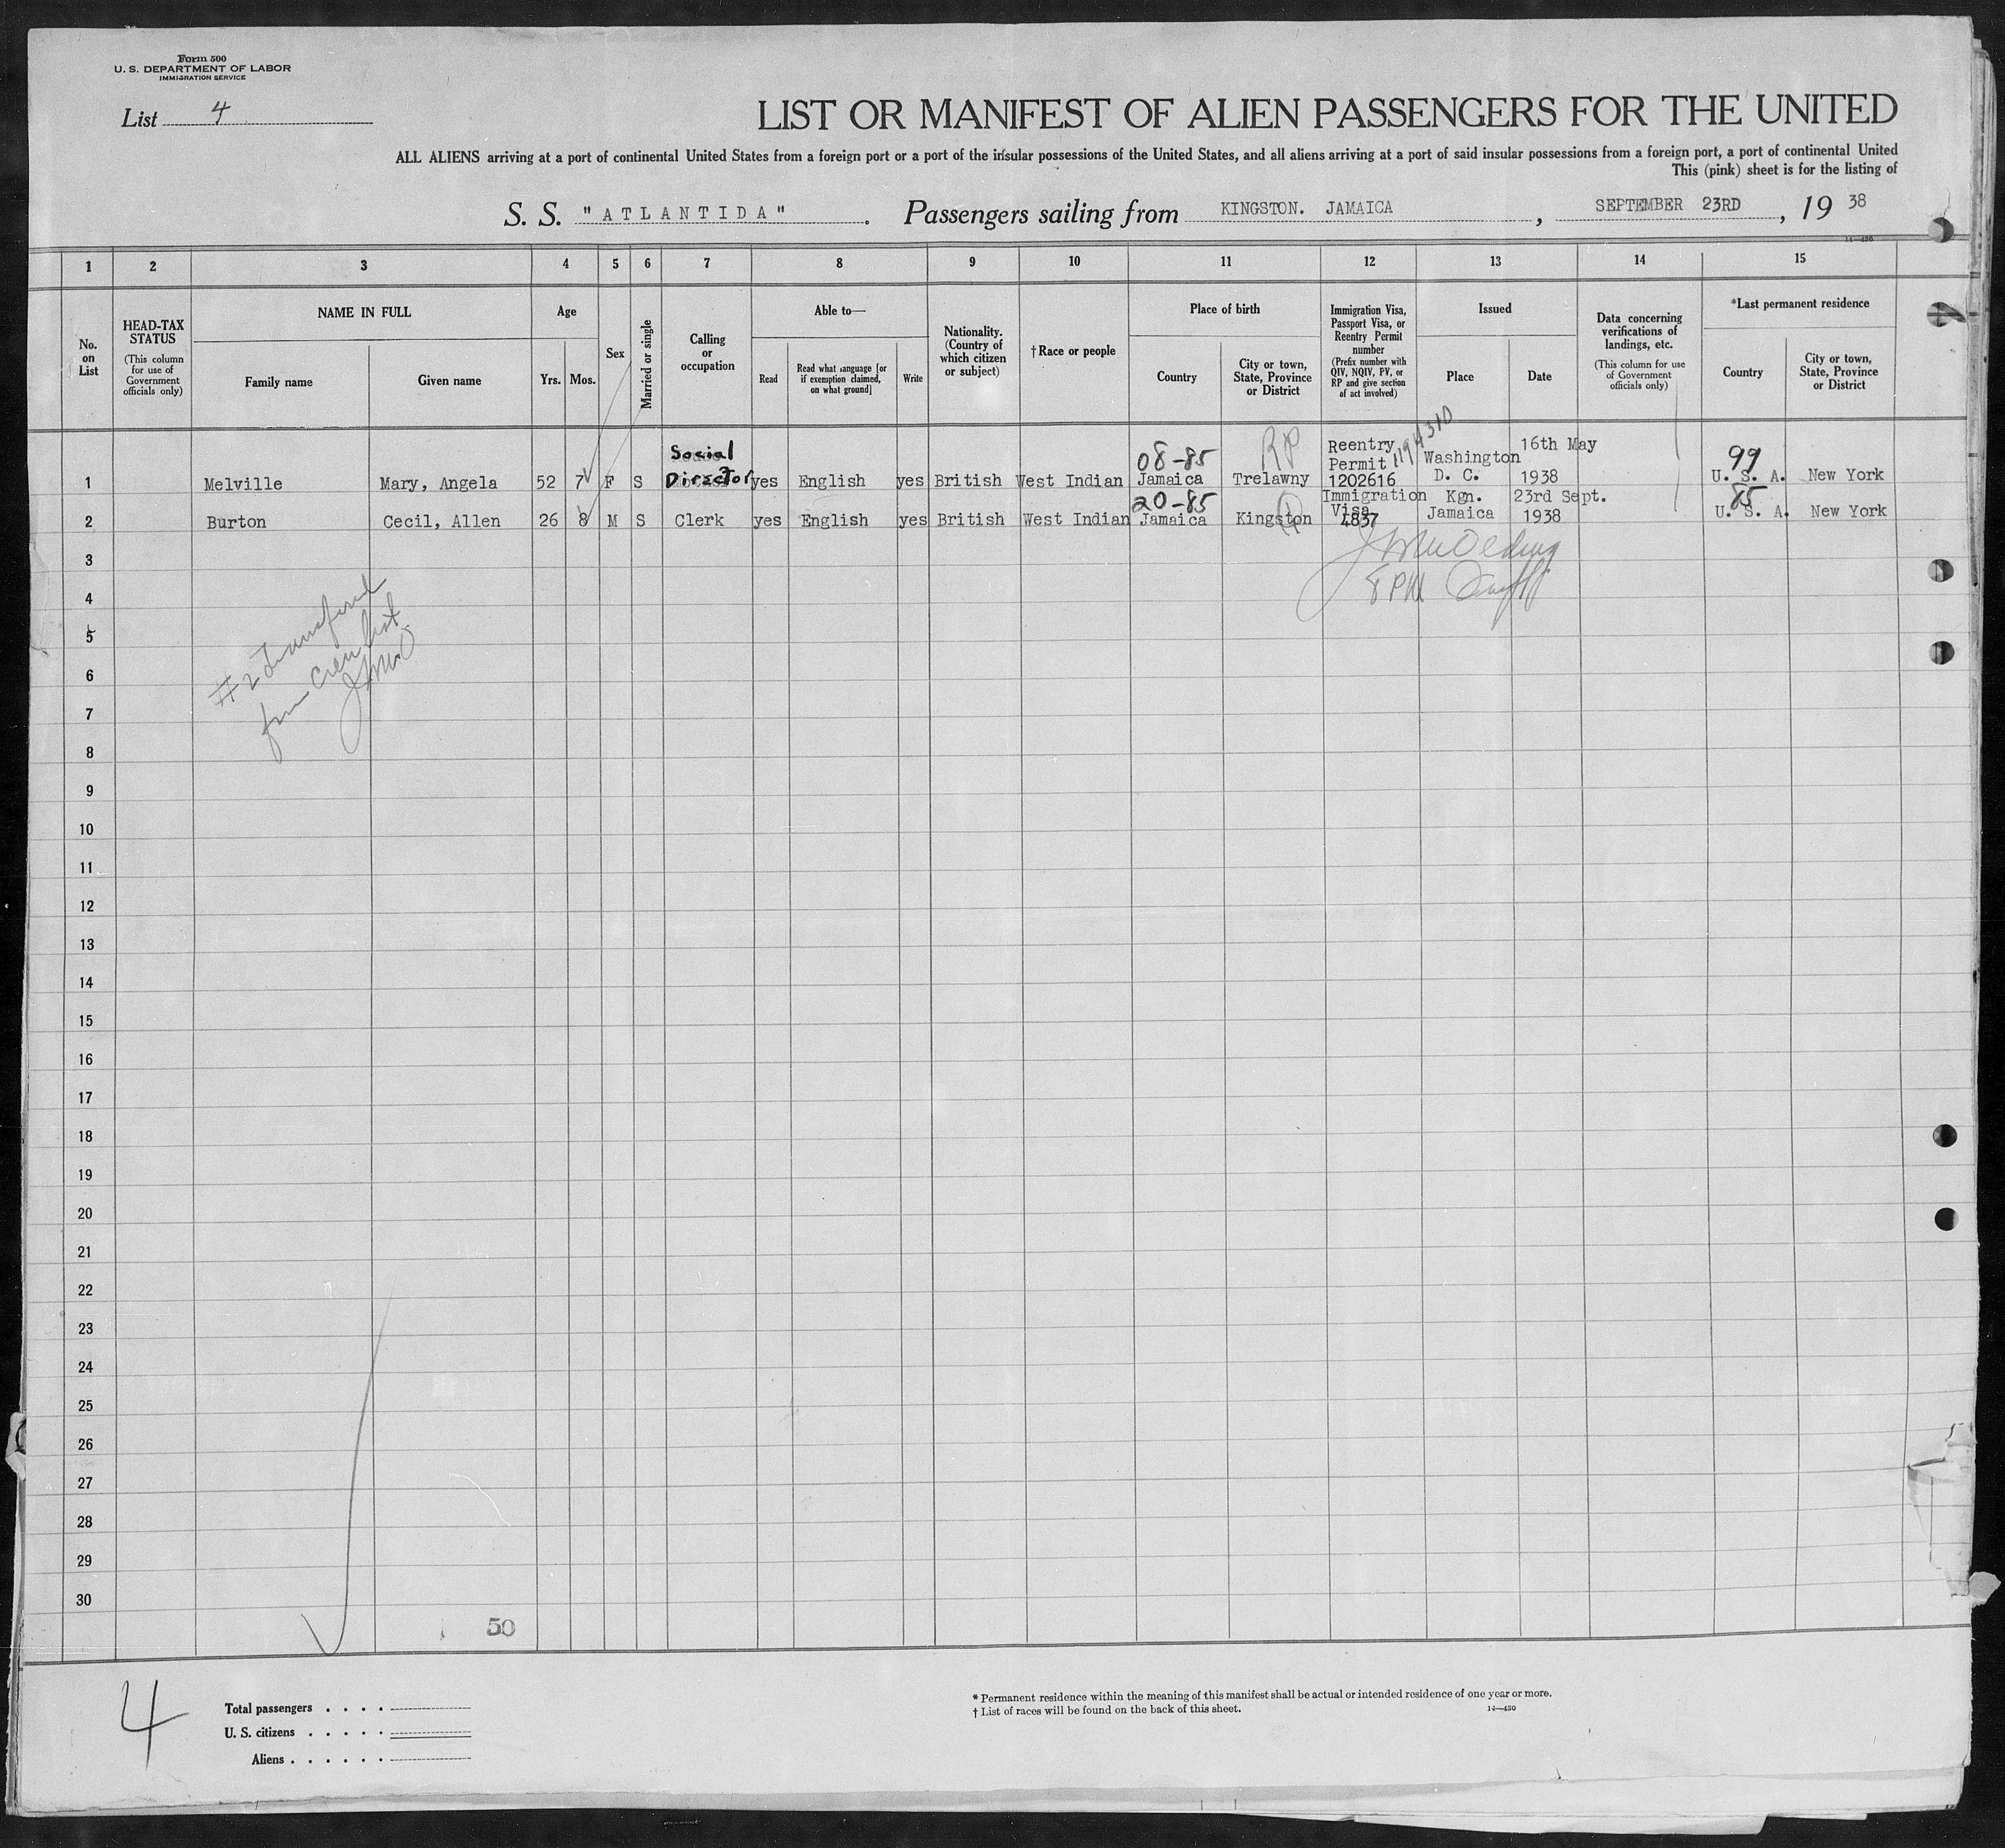 Form 500
U. S. DEPARTMENT OF LABOR
IMMIGRATION SERVICE
List 4
LIST OR MANIFEST OF ALIEN PASSENGERS FOR THE UNITED
ALL ALIENS arriving at a port of continental United States from a foreign port or a port of the insular possessions of the United States, and all aliens arriving at a port of said insular possessions from a foreign port, a port of continental United
This (pink) sheet is for the listing of
S. S. "ATLANTIDA". Passengers sailing from KINGSTON. JAMAICA, SEPTEMBER 23RD, 19 38
14—430
1 2 3 4 5 6 7 8 9 10 11 12 13 14 15
No. on List
HEAD-TAX STATUS
(This column for use of Government officials only)
NAME IN FULL
Family name
Given name
Age
Yrs.
Mos.
Sex
Married or single
Calling or occupation
Able to—
Read
Read what language [or if exemption claimed, on what ground]
Write
Nationality. (Country of which citizen or subject)
†Race or people
Place of birth
Country
City or town, State, Province or District
Immigration Visa, Passport Visa, or Reentry Permit number
(Prefix number with QIV, NQIV, PV, or RP and give section of act involved)
Issued
Place
Date
Data concerning verifications of landings, etc.
(This column for use of Government officials only)
*Last permanent residence
Country
City or town, State, Province or District
1 Melville Mary, Angela 52 7 F S Social Director yes English yes British West Indian 08-85 Jamaica RP Trelawny Reentry Permit 1202616 1194310 Washington D. C. 16th May 1938 99 U. S. A. New York
2 Burton Cecil, Allen 26 8 M S Clerk yes English yes British West Indian 20-85 Jamaica Kingston Immigration Visa 4837 Kgn. Jamaica 23rd Sept. 1938 85 U. S. A. New York
3
8 PM
4
5
6
#2 Transferred
from Crew list
7
8
9
10
11
12
13
14
15
16
17
18
19
20
21
22
23
24
25
26
27
28
29
30
50
4
Total passengers . . . .
U. S. citizens . . . . .
Aliens . . . . . .
* Permanent residence within the meaning of this manifest shall be actual or intended residence of one year or more.
† List of races will be found on the back of this sheet.
14—430